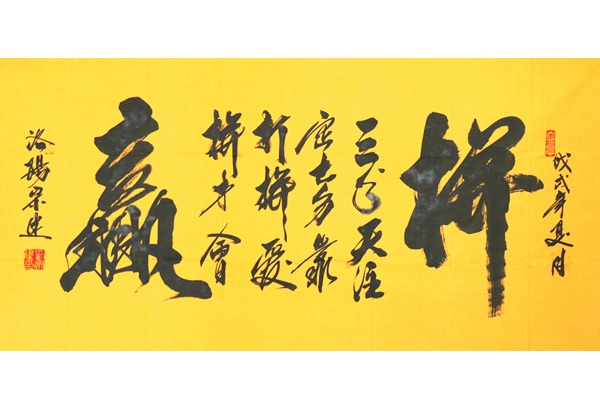 戊戌年夏月
拼
三分天注
定七分靠
打拼爱
拼才會
赢
洛陽宋建